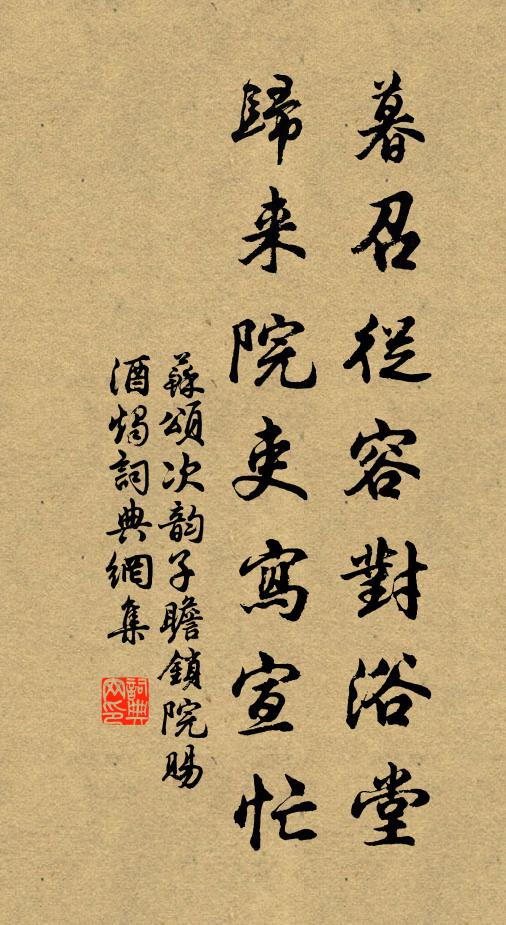 暮召從容對浴堂
歸来院吏寫宣忙
蘇頌次韵子瞻鎖院賜
酒燭詞典網集
詞典
网印